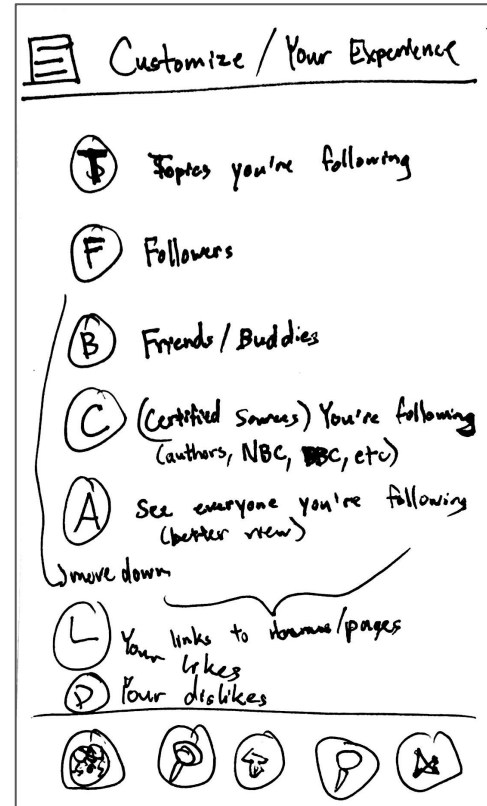 Customize / Your Experience
T Topics you're following
F Followers
B Friends / Buddies
C (Certified Sources) You're following
(authors, NBC, BBC, etc)
A See everyone you're following
(better view)
move down
L Your links to /pages
likes
D Your dislikes